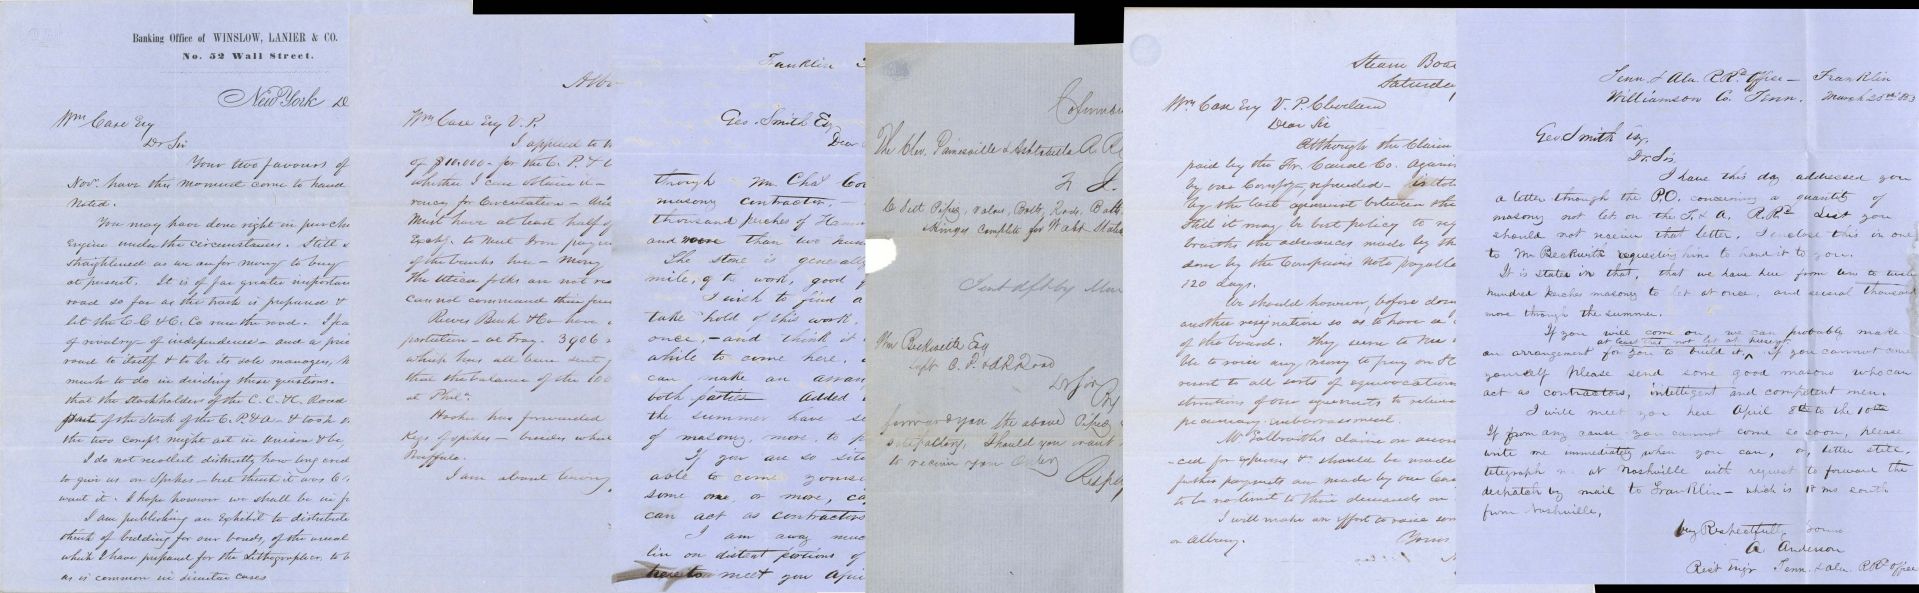 Banking Office of WINSLOW, LANIER & CO.
No. 52 Wall Street.
New York
Wm Case Esq
Dr Sir
Your two favours of
Nov. have this moment come to hand
noted.
You may have done right in purch
Engine under the circumstances. Still
straightened as we are for money to buy
at present. It is of far greater importan
road so far as the track is prepared &
let the C. C. & C. Co run the road. I fea
of rivalry of independence - and a pri
road to itself & to be its sole managers,
much to do in deciding these questions.
that the stockholders of the C. C. & C. Road
parts of the Stock of the C. P. & A. & took
the two comps. might act in unison & be
I do not recollect distinctly how long cred
to give us on Spikes - but think it was 6
want it. I hope however we shall be in f
I am publishing an Exhibit to distribute
think of bidding for our bonds, of the usual
which I have prepared for the Lithographer, to b
as is common in similar cases
Wm Case Esq V. P.
I applied to
of $10,000 - for the C. P. &
whether I can obtain it -
rency for Circulation -
must have at least half of
Exchg. to meet Iron paym
of the banks here - Money
The Utica folks are not
cannot command their fun
Reeves Buck & Co have
at Troy. 3906
which has all been sent
that the balance of the 100
at Phila.
Hooker has forwarded
Kegs of spikes - besides what
Buffalo.
I am about
Franklin
Geo. Smith Esq
Dear
through Mr. Chas
masony contractor, -
thousand perches of
and more than two
The stone is generally
mile, of the work, good
I wish to find a
take hold of this work,
once, - and think it
able to come here,
can make an arran
both parties. Added
the summer have
of masony, more, to
If you are so situ
able to come yourse
some one or more, ca
can act as contractors
I am away muc
lin on distant portions of
here to meet you Apri
Columbu
The Clev. Painesville & Ashtabula R. R
To J.
6 Sett Pipes, Valves, Bolts, Rods, Balls
Hinges Complete for Wabt Statio
Sent dft by
Wm Beckwith Esq
C. P. & A R Road
Dr Sir
forward you the above Pipes
satisfactory, Should you want
to receive your Order
Respe
Steam Boa
Saturday
Wm Case Esq V. P. Cleveland
Dear Sir
Although the Claim
paid by the
by our Company, refunded -
by the last agreement between the
still it may be but policy to
the advances made by th
by the Companies Note payable
120 days.
We should however, before
another resignation so as to have a
of the board. They seem to
ble to raise any money to pay on
resort to all sorts of equivocation
of our agreements to relieve
pecuniary embarrassment.
Mr Galbraiths claim on
ced for expenses &c should be made
further payments are made by our Com
to be no limit to their demands on
I will make an effort to raise som
in Albany.
Yours
Tenn. & Ala. R.Rd Office - Franklin
Williamson Co. Tenn. March 25th
Geo. Smith Esq,
Dr. Sir
I have this day addressed you
a letter through the P.O. concerning a quantity of
masony not let on the T. & A. R.Rd Lest you
should not receive that letter, I enclose this in one
to Mr Beckwith requesting him to hand it to you.
It is stated in that, that we have here from ten to twelve
hundred perches masony to let at once, and several thousand
more through the summer.
If you will come on, we can probably make
an arrangement for you to build it, if you cannot come
at least that not let at present
yourself please send some good masons who can
act as contractors, intelligent and competent men.
I will meet you here April 8th to the 10th
If from any cause you cannot come so soon, please
write me immediately when you can, or, better still,
telegraph me at Nashville with request to forward the
despatch by mail to Franklin - which is 18 ms south
from Nashville,
Very Respectfully Yours
A Anderson
Rest Engr Tenn. & Ala. R.Rd Office